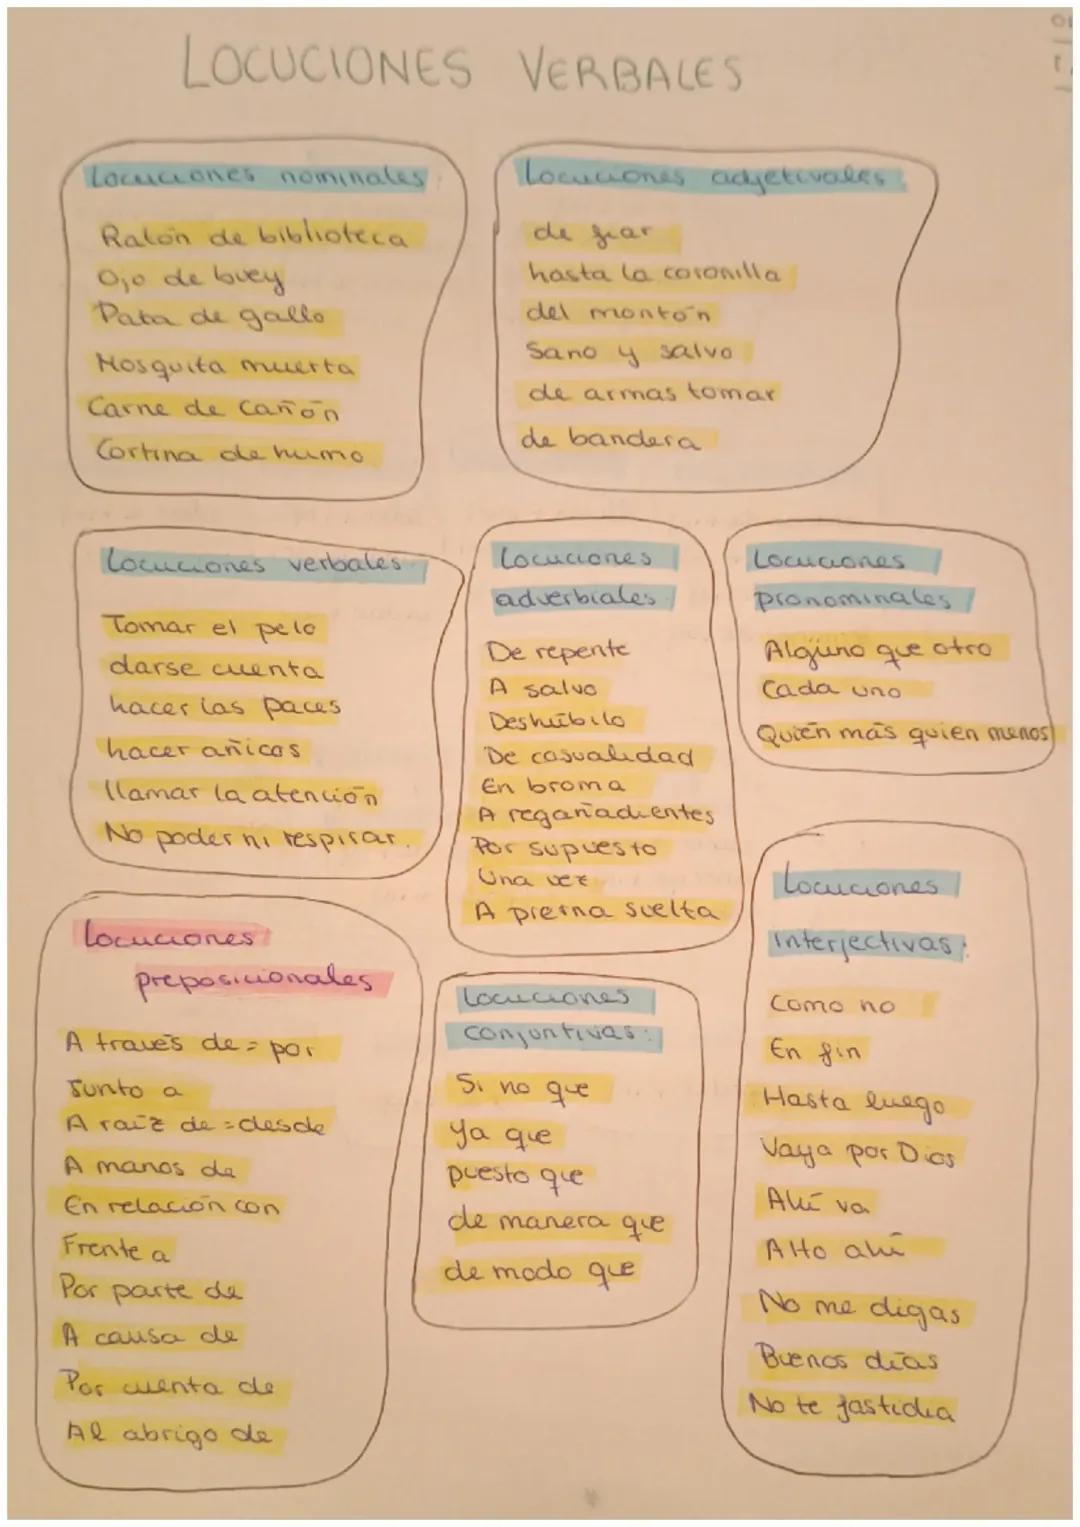 LOCUCIONES VERBALES
Locuciones nominales:
Ratón de biblioteca
Ojo de buey
Pata de gallo
Mosquita muerta
Carne de cañón
Cortina de humo
Locuciones adjetivales:
de fiar
hasta la coronilla
del montón
Sano y salvo
de armas tomar
de bandera
Locuciones verbales:
Tomar el pelo
darse cuenta
hacer las paces
hacer añicos
llamar la atención
No poder ni respirar.
Locuciones
adverbiales:
De repente
A salvo
Deshúbilo
De casualidad
En broma
A regañadientes
Por supuesto
Una vez
A pierna suelta
Locuciones
pronominales:
Alguno que otro
Cada uno
Quién más quien menos
Locuciones
preposicionales
A través de = por
Junto a
A raíz de = desde
A manos de
En relación con
Frente a
Por parte de
A causa de
Por cuenta de
Al abrigo de
Locuciones
conjuntivas:
Si no que
Ya que
puesto que
de manera que
de modo que
Locuciones
interjectivas:
Como no
En fin
Hasta luego
Vaya por Dios
Ahí va
Alto ahí
No me digas
Buenos días
No te fastidia